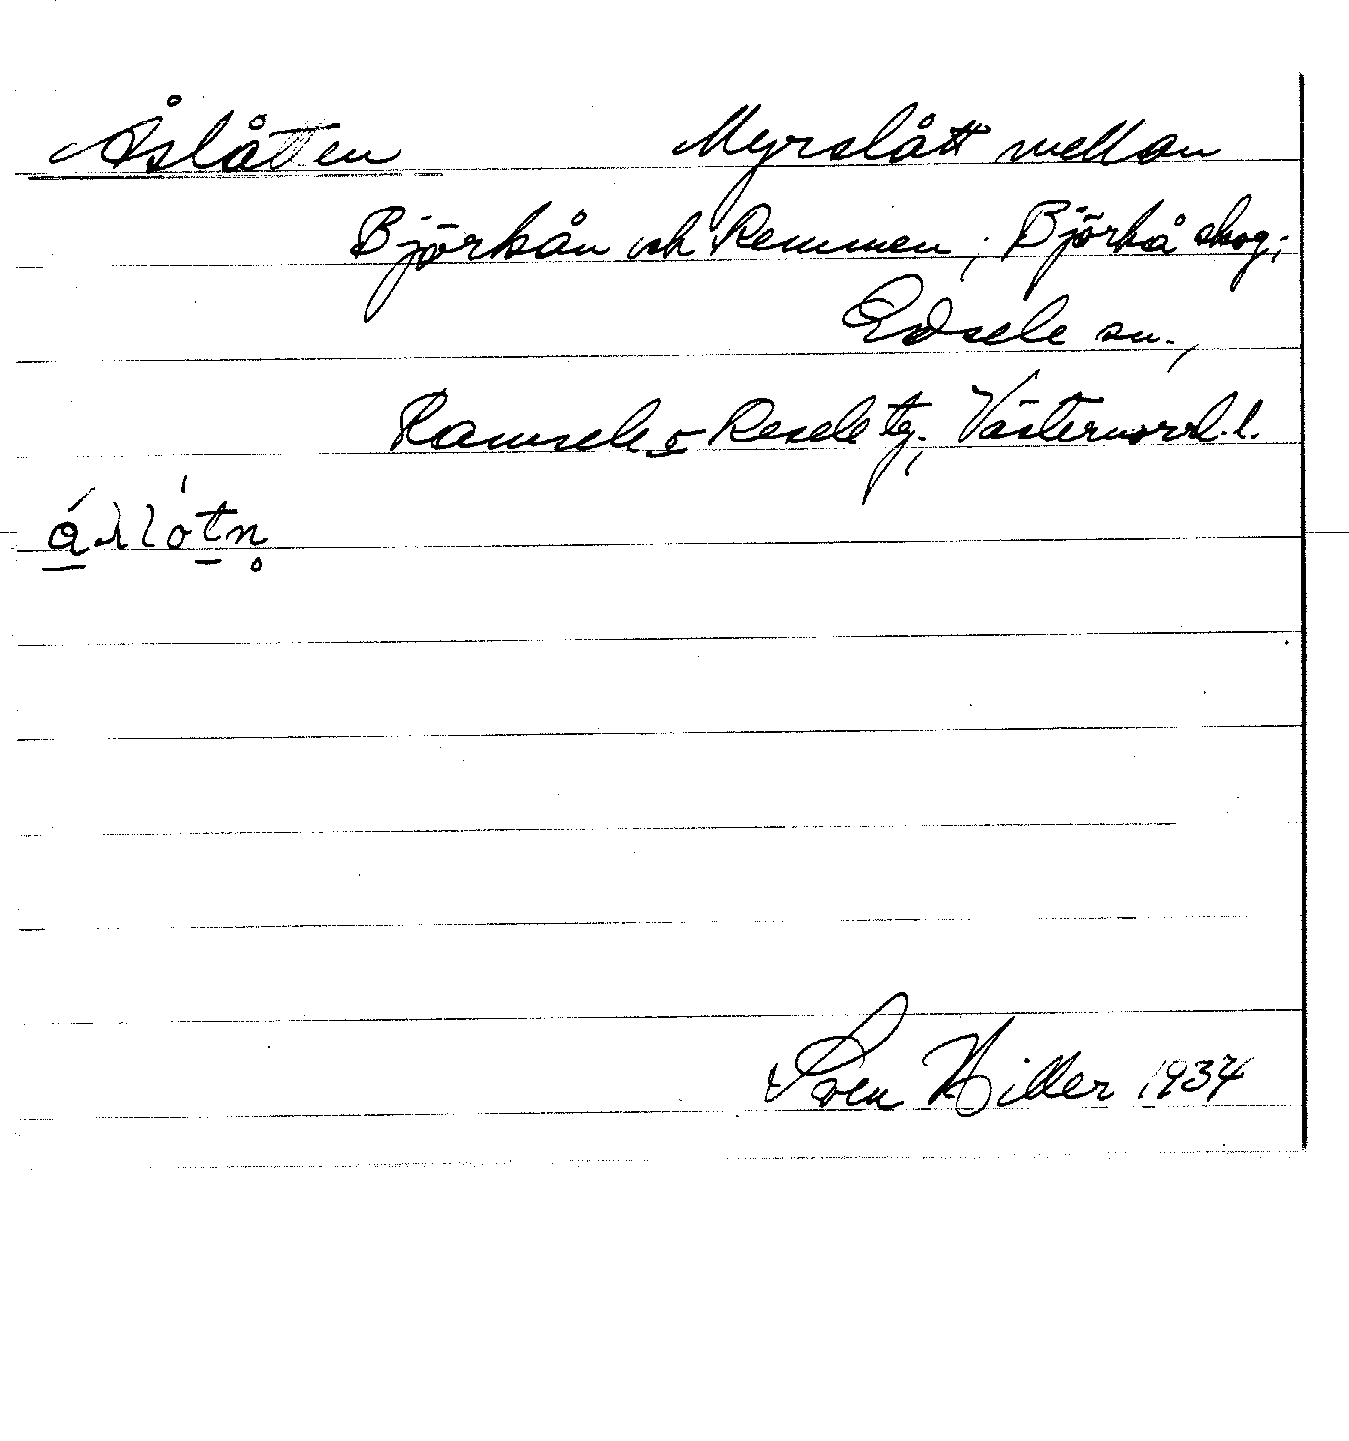 Åslåtten Myrslått mellan
Björkån och Remmen; Björkå skog;
Edsele sn.,
Ramsele o Resele tg; Västernorrl. l.
Sven Hiller 1934